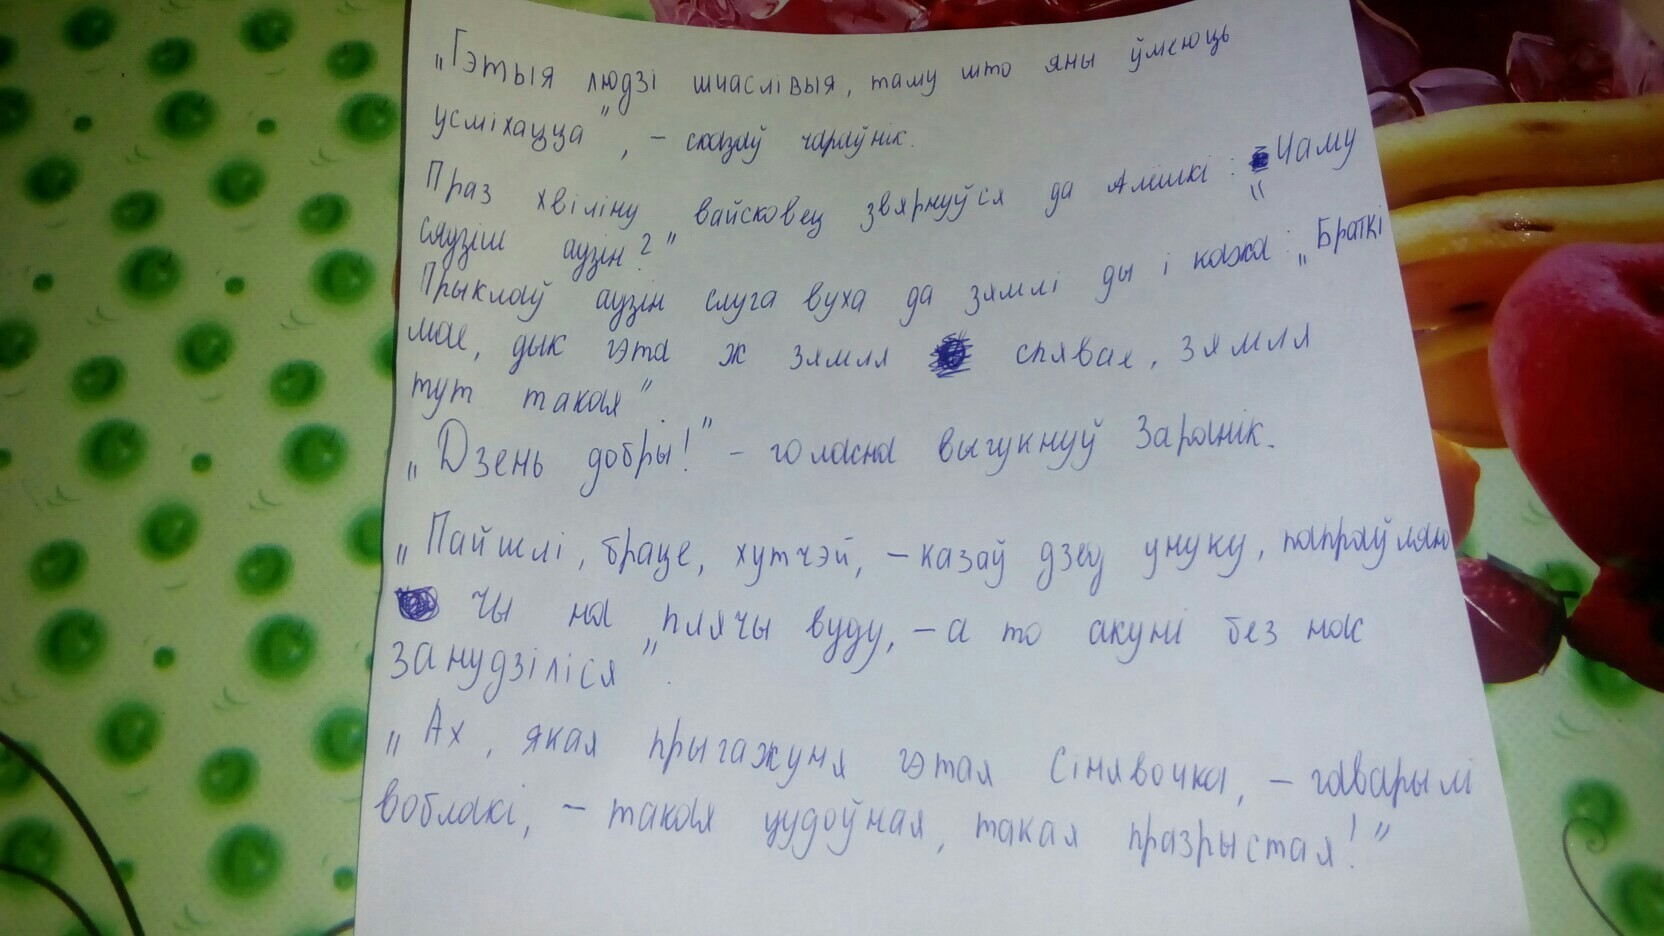 „Гэтыя людзі шчаслівыя, таму што яны ўмеюць
усміхацца”, – сказаў чараўнік.
Праз хвіліну вайсковец звярнуўся да Алешкі: „Чаму
сядзіш адзін?”
Прыклаў адзін слуга вуха да зямлі ды і кажа: „Браткі
мае, дык гэта ж зямля спявае, зямля
тут такая”.
„Дзень добры!” – голасна выгукнуў Заранік.
„Пайшлі, браце, хутчэй, – казаў дзед унуку, папраўляю
чы на плячы вуду, – а то акуні без нас
занудзіліся”.
„Ах, якая прыгажуня гэтая Сінявочка, – гаварылі
воблакі, – такая цудоўная, такая празрыстая!”